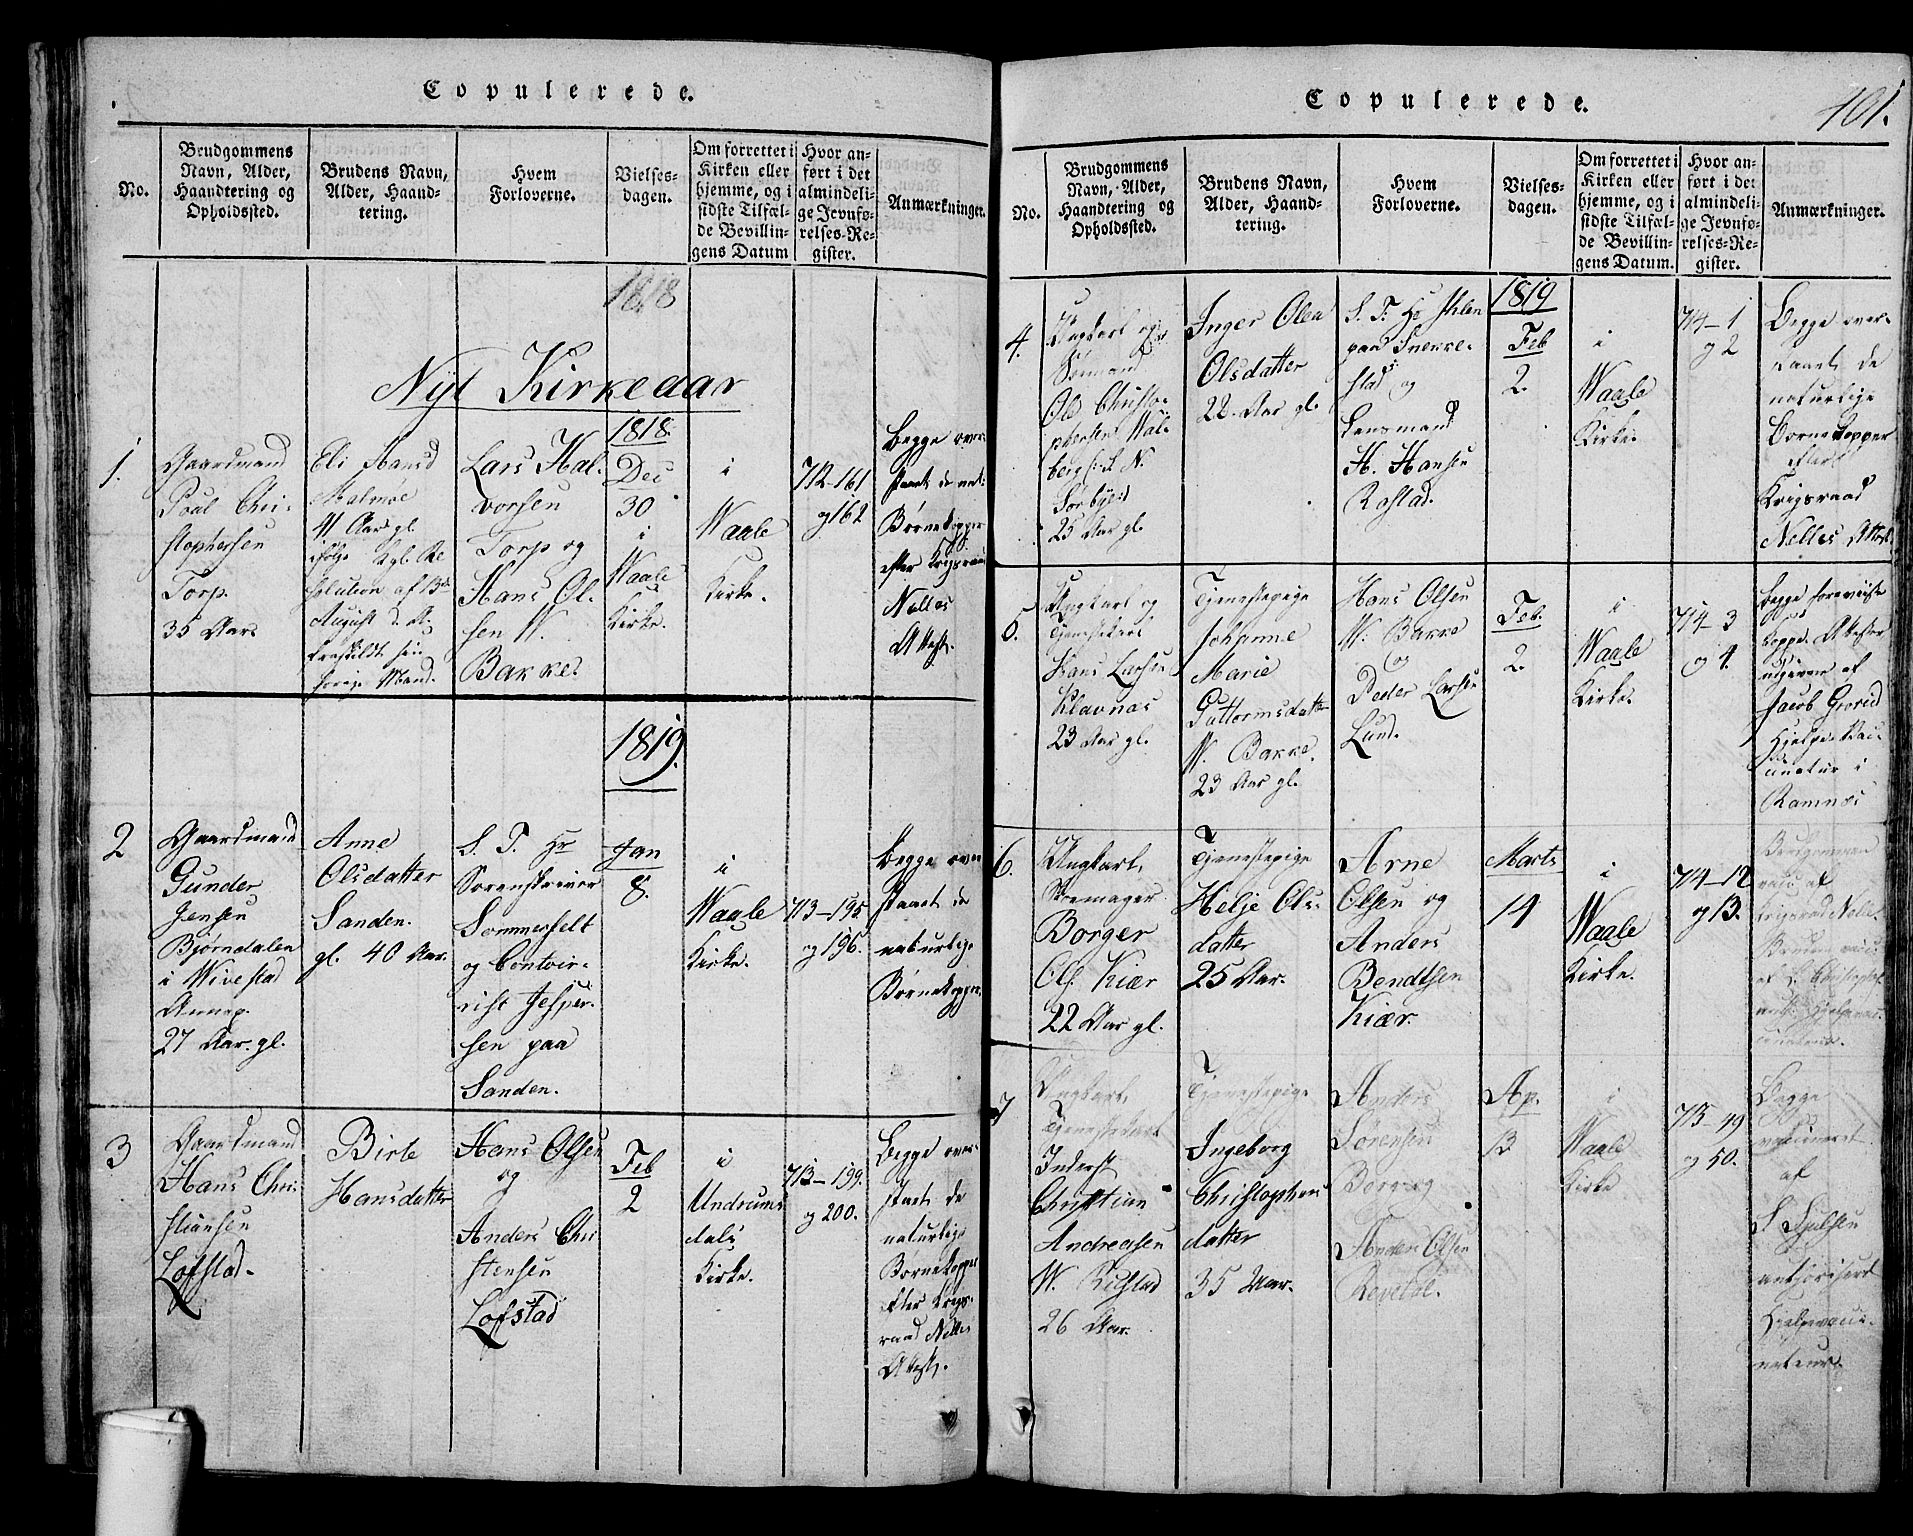 Copulerede.
No.
Brudgommens
Navn, Alder,
Haandtering og
Opholdssted.
Brudens Navn,
Alder, Haand-
tering.
Hvem
Forloverne.
Vielses-
dagen.
Om forrettet i
Kirken eller
hjemme, og i
sidste Tilfæl-
de Bevillin-
gens Datum
Hvor an-
ført i det
almindeli-
ge Jevnfø-
relses-Re-
gister.
Anmærkninger.
1818
Nyt Kirkeaar
1.
Gaardmand
Poul Chri-
stophersen
Torp.
35 Aar.
Eli Hansd
Malmøe
Aar gl.
ifølge Kgl. Re
solution af 13de
August d. A.
fraskildt sin
forrige Mand.
Lars Hal-
vorsen
Torp og
Hans Ol-
sen W.
Bakke.
1818.
Dec
30
i
Waale
Kirke.
i
Waale
Kirke.
712-161
og 162
Begge over-
staaet de nat:
Børnekopper
efter Krigsraad
Nelles
Attest.
1819.
2
Gaardmand
Gunder
Jensen
Bjørndalen
i Wivestad
Annex.
27 Aar. gl.
Anne
Olsdatter
Sanden.
gl. 40 Aar.
S. T. Hr
Sorenskriver
Sommerfelt
og Contoir-
rist Jesper-
sen paa
Sanden.
Jan
8.
i
Waale
Kirke.
713-195
og 196.
Begge over
staaet de
naturlige
Børnekopper.
3
Gaardmand
Hans Chri-
stiansen
Lofstad.
Birte
Hansdatter
Hans Olsen
og
Anders Chri
stensen
Lofstad
Feb
2
i
Undrums
dals
Kirke.
713-199.
og 200.
Begge over-
staaet de
naturlige
Børnekopper
efter Krigs-
raad Nelles
Attest.
Copulerede.
101.
No.
Brudgommens
Navn, Alder,
Haandtering og
Opholdssted.
Brudens Navn,
Alder, Haand-
tering.
Hvem
Forloverne.
Vielses-
dagen.
Om forrettet i
Kirken eller
hjemme, og i
sidste Tilfæl-
de Bevillin-
gens Datum.
Hvor an-
ført i det
almindeli-
ge Jevnfø-
relses-Re-
gister.
Anmærkninger.
4.
Ungkarl og
Sømand
Ole Christo-
phersen Wal-
berg
25 Aar gl.
Inger Olea
Olsdatter
22 Aar gl.
S. T. Hr
paa Snekke-
stad og
Lensmand
H. Hansen
Rostad.
1819
Feb
2.
i
Waale
Kirke.
714-1
og 2
Begge over-
staaet de
naturlige
Børnekopper
efter
Krigsraad
Nelles Attest
5.
Ungkarl og
Tjenestekarl
Hans Larsen
Klavnæs
23 Aar gl.
Tjenestepige
Johanne
Marie
Guttormsdatter
W. Bakke.
23 Aar gl.
Hans Olsen
W. Bakke
og
Peder Larsen
Lund.
Feb.
2.
i
Waale
Kirke.
714-3
og 4.
Begge foreviiste
Koppe Attester
udgiven af
Jacob Grorud
Hjelpe Vac-
cinatør i
Ramnæs
6.
Ungkarl,
Skomager
Borger
Ols. Kiær
22 Aar gl.
Tjenestepige
Helje Ols-
datter
25 Aar.
Arne
Olsen og
Anders
Bendtsen
Kiær.
Marts
14
i
Waale
Kirke.
714-12
og 13.
Brudgommen
vacc. af
Krigsraad Nelle.
Bruden vacc.
7
Ungkarl,
Tjenestekarl
Inderst
Christian
Andreasen
W. Rustad
26 Aar.
Tjenestepige
Ingeborg
Christophers
datter
35 Aar.
Anders
Sørensen
Borg og
Anders Olsen
Revetal.
Ap.
13
i
Waale
Kirke
715-49
og 50.
Begge
vaccineret
af
authoriseret
Hjelpevacci-
nateur.